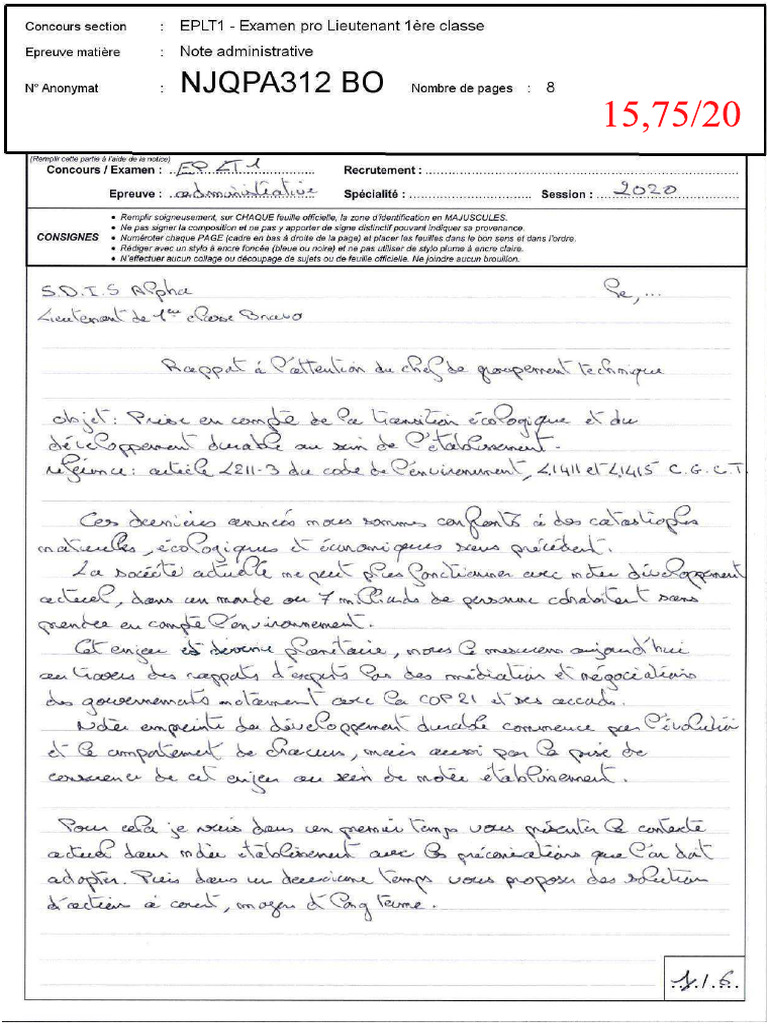 Concours section : EPLT1 - Examen pro Lieutenant 1ère classe
Epreuve matière : Note administrative
N° Anonymat : NJQPA312 BO Nombre de pages : 8
15,75/20
(Remplir cette partie à l'aide de la notice)
Concours / Examen : EPLT1 Recrutement :
Epreuve : administrative Spécialité : Session : 2020
CONSIGNES
• Remplir soigneusement, sur CHAQUE feuille officielle, la zone d'identification en MAJUSCULES.
• Ne pas signer la composition et ne pas y apporter de signe distinctif pouvant indiquer sa provenance.
• Numéroter chaque PAGE (cadre en bas à droite de la page) et placer les feuilles dans le bon sens et dans l'ordre.
• Rédiger avec un stylo à encre foncée (bleue ou noire) et ne pas utiliser de stylo plume à encre claire.
• N'effectuer aucun collage ou découpage de sujets ou de feuille officielle. Ne joindre aucun brouillon.
S.D.I.S Alpha Le, ...
Lieutenant de 1ère classe Bravo
Rapport à l'attention du chef de groupement technique
objet : Prise en compte de la transition écologique et du
développement durable au sein de l'établissement.
référence : article L211-3 du code de l'environnement, L1411 et L1415 C.G.C.T.
Ces dernières années nous sommes confrontés à des catastrophes
naturelles, écologiques et économiques sans précédent.
La société actuelle ne peut plus fonctionner avec notre développement
actuel, dans un monde ou 7 milliards de personne cohabitent sans
prendre en compte l'environnement.
Cet enjeu est devenu planétaire, nous le mesurons aujourd'hui
au travers des rapports d'experts les médiation et négociations
des gouvernements notamment avec la COP21 et ses accords.
Notre empreinte du développement durable commence par l'évolution
et le comportement de chacun, mais aussi par la prise de
conscience de cet enjeu au sein de notre établissement.
Pour cela je vais dans un premier temps vous présenter le contexte
actuel dans notre établissement avec les préconisations que l'on doit
adopter. Puis dans un deuxième temps vous proposer des solution
d'action à court, moyen et long terme.
.1.1.6.